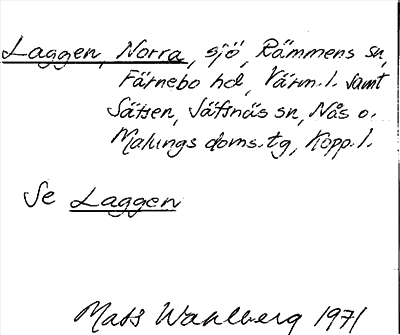 Laggen, Norra, sjö, Rämmens sn,
Färnebo hd, Värm. l. samt
Säfsen, Säfsnäs sn, Nås o.
Malungs doms. tg, Kopp. l.
Se Laggen
Mats Wahlberg 1971